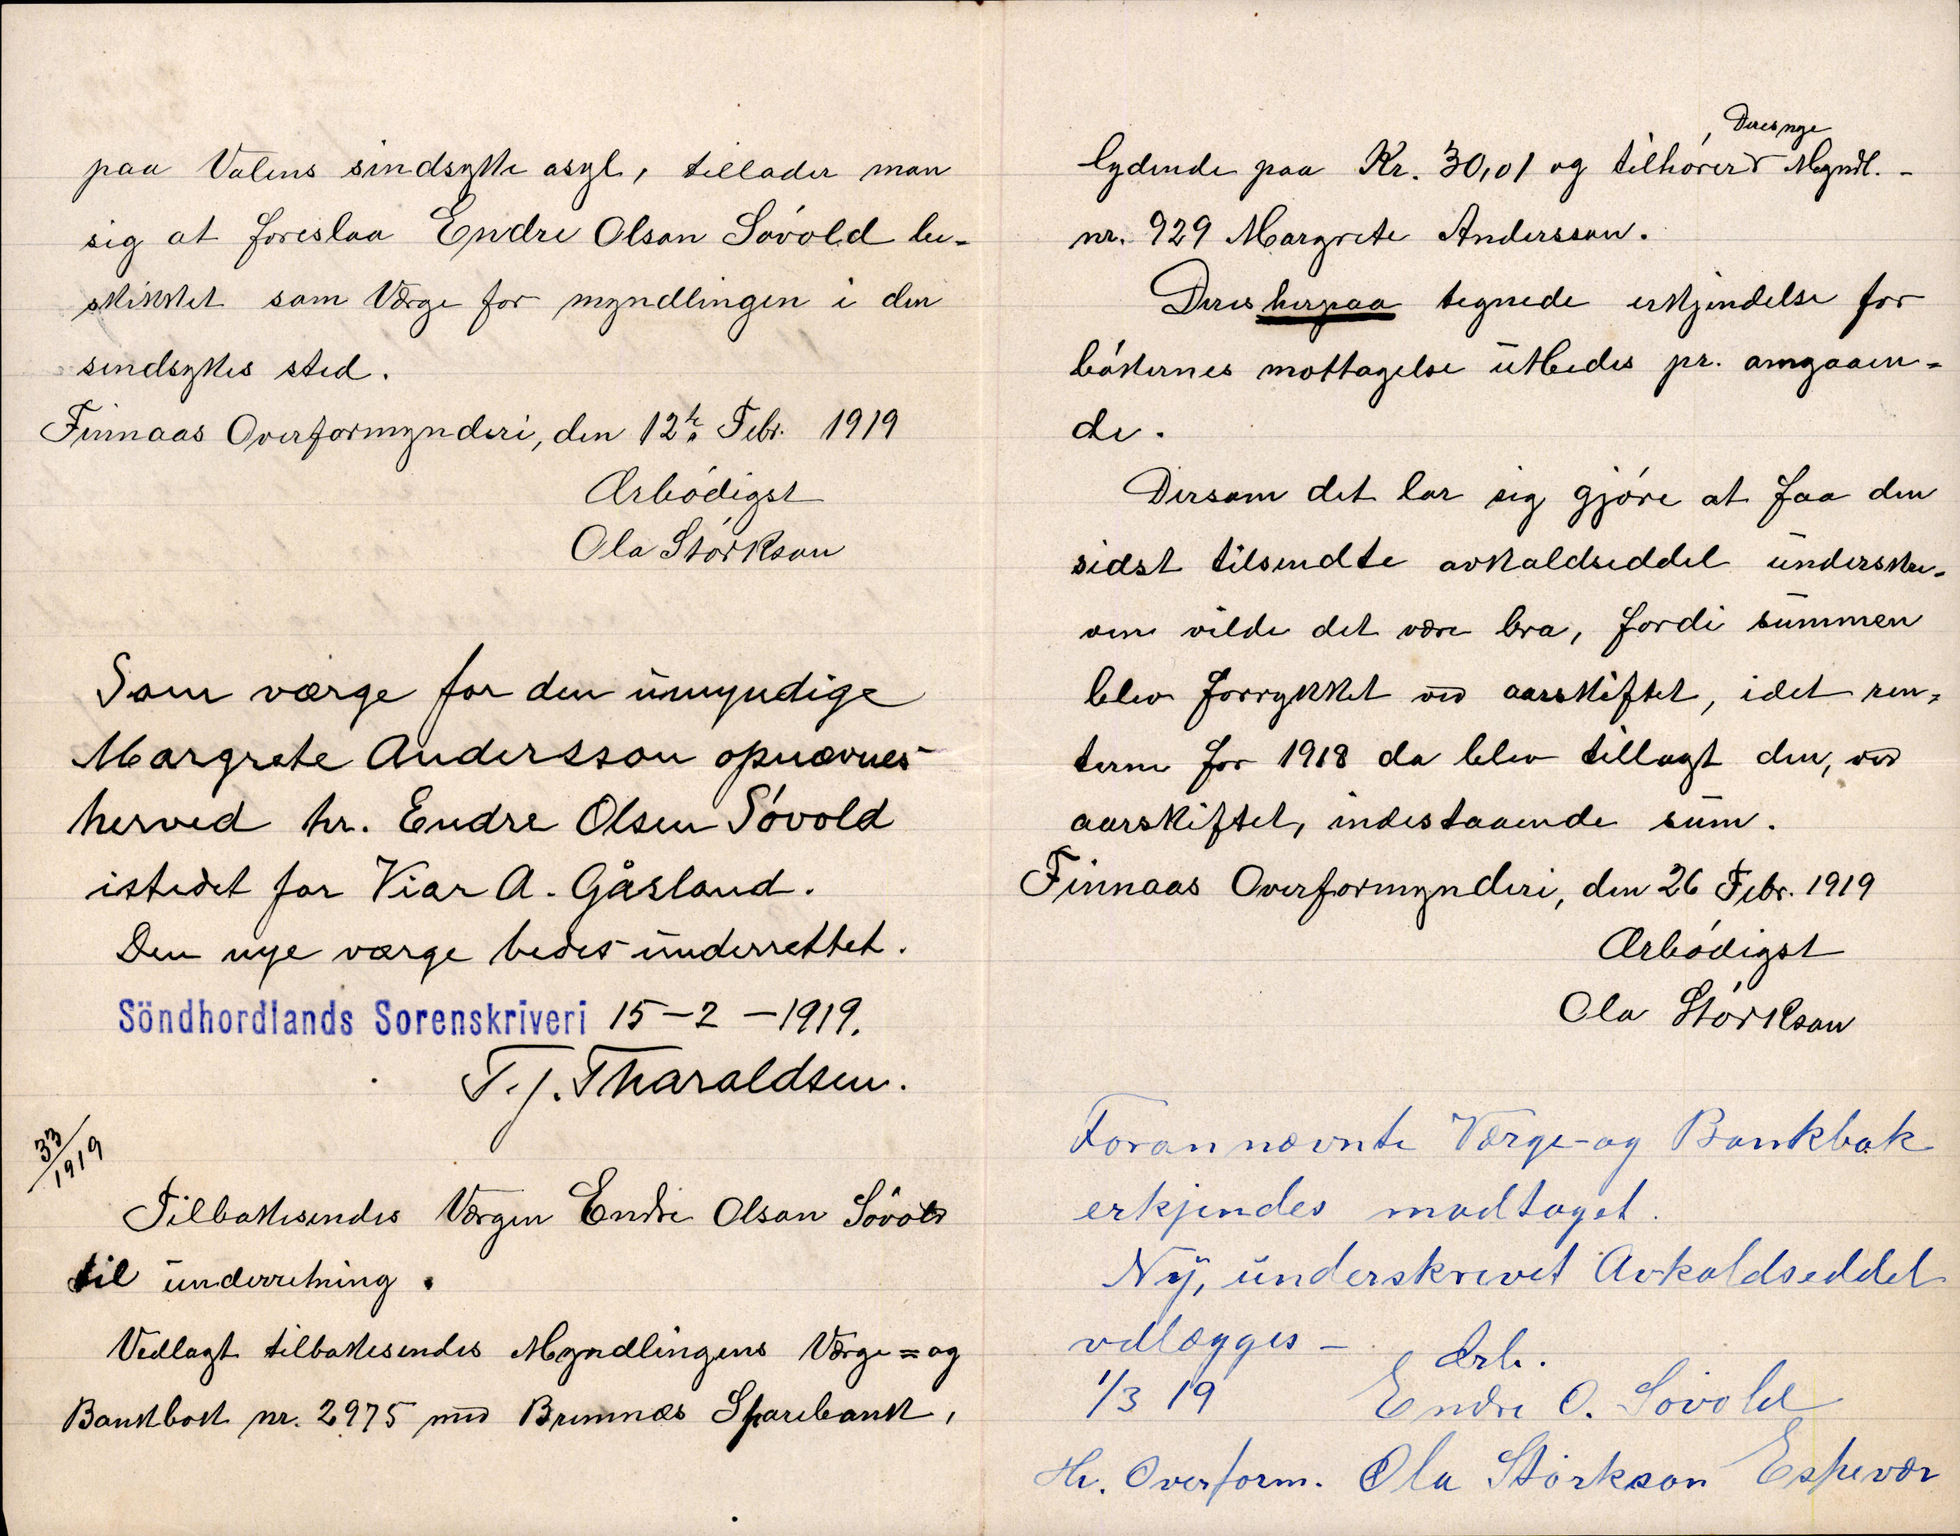 paa Valens sindsyke asyl, tillader man
sig at foreslaa Endre Olson Sövold be-
skikket som Værge for myndlingen i den
sindsykes sted.
Finnaas Overformynderi, den 12te Febr. 1919
Ærbödigst
Ola Störkson
Som værge for den umyndige
Margrete Andersson opnævnes
herved hr. Endre Olsen Sövold
istedet for Viar A. Gåsland.
Den nye værge bedes underrettet.
Söndhordlands Sorenskriveri 15-2-1919.
T. J. Tharaldsen.
33/1919
Tilbakesendes Værgen Endre Olson Sövold
til underretning.
Vedlagt tilbakesendes Myndlingens Værge= og
Bankbok nr. 2975 med Bremnæs Sparebank,
Deres nye
lydende paa Kr. 30,01 og tilhörer Myndl.-
nr. 929 Margrete Andersson.
Deres herpaa tegnede erkjendelse for
bökernes mottagelse utbedes pr. omgaaen-
de.
Dersom det lar sig gjöre at faa den
sidst tilsendte avkaldseddel underskre-
ven vilde det være bra, fordi summen
blev forrykket ved aarskiftet, idet ren-
terne for 1918 da blev tillagt den, ved
aarskiftet, indestaaende sum.
Finnaas Overformynderi, den 26 Febr. 1919
Ærbödigst
Ola Störkson
Forannævnte Værge- og Bankbok
erkjendes modtaget.
Ny, underskrevet Avkaldseddel
vedlægges -
Ærb.
1/3 19 Endre O. Sövold
Hr. Overform. Ola Störkson Espevær